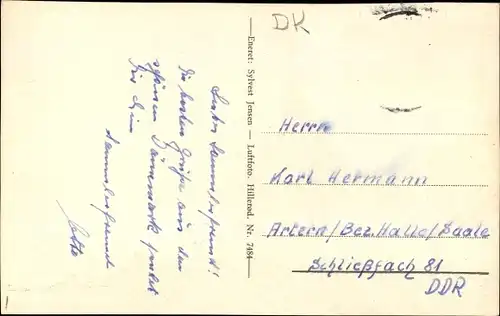 DK
Lieber Sammlerfreund!
Die besten Grüße aus dem
schönen Dänemark sendet
Dir Dein
Sammlerfreund
Otto
Eneret: Sylvest Jensen — Luftfoto. Hillerød. Nr. 7484
Herrn
Karl Hermann
Artern/Bez. Halle/Saale
Schließfach 81
DDR